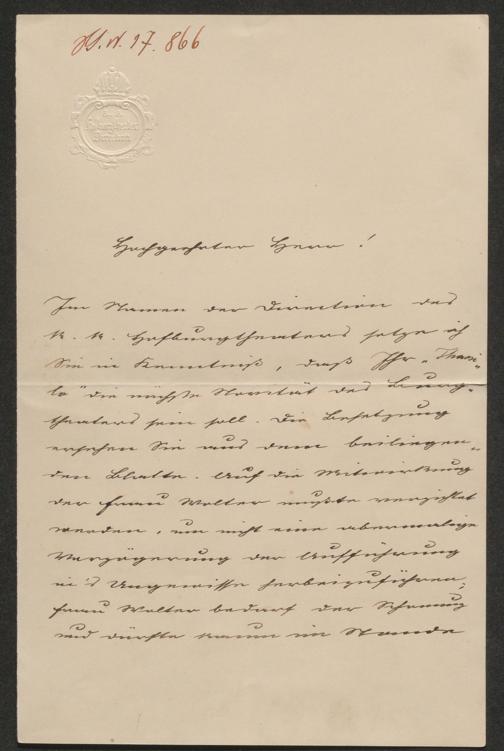 H.I.N. 17.866
Hochgeehrter Herr!
Im Namen der Direction des
k. k. Hofburgtheaters setze ich
Sie in Kenntniß, daß Ihr „
lo" die nächste Novität des Burg-
theaters sein soll. Die Besetzung
ersehen Sie aus dem beiliegen-
den Blatte. Auf die Mitwirkung
der Frau Wolter mußte verzichtet
werden, um nicht eine abermalige
Verzögerung der Aufführung
in's Ungewisse herbeizuführen,
Frau Wolter bedarf der Schonung
und dürfte kaum im Stande